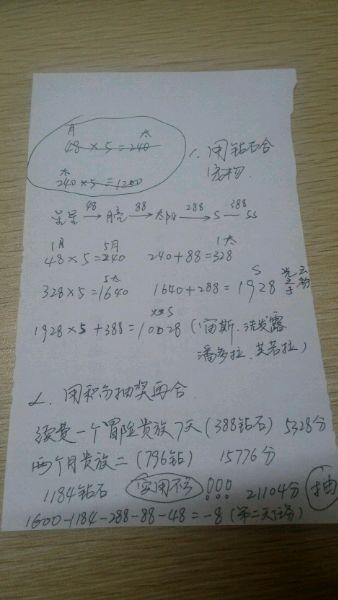 月 太
48×5=240
太
240×5=1200
1、用钻石合
宠物
星星 48→ 月亮 88→ 太阳 288→ S 388→ SS
1月 5月 1太
48×5=240 240+88=328
5太 S
328×5=1640 1640+288=1928
SS
1928×5+388=10028(宙斯、
潘多拉、
2、用积分抽奖再合
续费一个冒险贵族7天(388钻石) 5328分
两个月贵族二(796钻) 15776分
1184钻石 实用不亏!!! 21104分 抽
1600-1184-288-88-48=-8(第二天